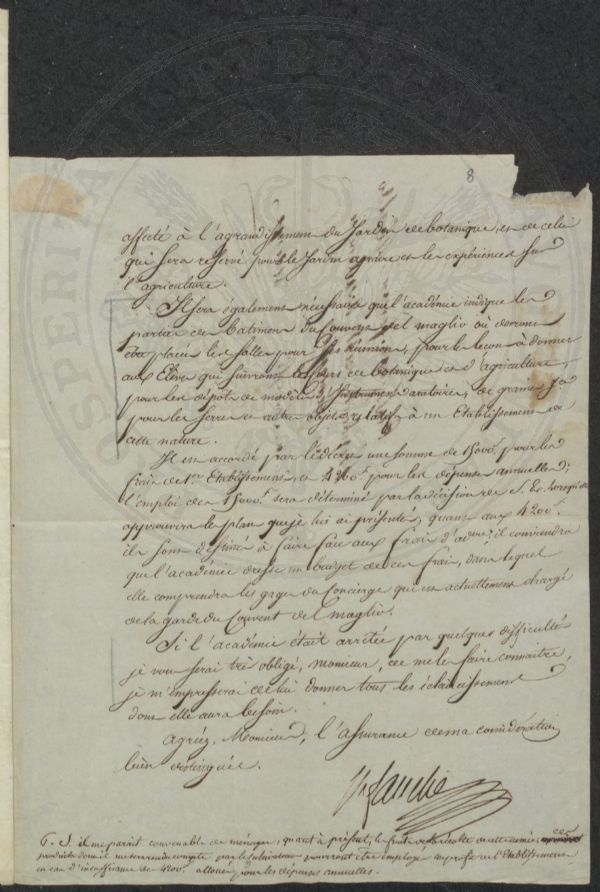 8
affecté à l'agrandissement du Jardin de botanique, et de celui
qui sera réservé pour le Jardin agraire et les expériences sur
l'agriculture.
Il sera également nécessaire que l'académie indique les
parties de batiment du Couvent del maglio où devront
être placées les salles pour les réunions, pour les leçons à donner
aux Elèves qui suivront les cours de botanique et d'agriculture,
pour les dépots de modèles d'Instrumens aratoires, de graines &a
pour les serres et autres objets relatifs à un Etablissement de
cette nature.
Il est accordé par le décret une somme de 15000f pour les
frais de 1er Etablissement, et 4200f pour les dépenses annuelles;
l'emploi des 15000f sera déterminé par la décision de S. Ex. lorsqu'elle
approuvera le plan que je lui ai présenté; quant aux 4200f
ils sont destinés à faire face aux frais d'admon; il conviendra
que l'académie dresse un budget de ces frais, dans lequel
elle comprendra les gages du Concierge qui est actuellement chargé
de la garde du Couvent del maglio.
Si l'académie était arretée par quelques difficultés
je vous serai très obligé, Monsieur, de me le faire connaitre,
je m'empresserai de lui donner tous les éclaircissemens
dont elle aura besoin.
Agréez, Monsieur, l'assurance de ma considération
bien distinguée.
Fauchet
P. S. il me parait convenable de ménager, quant à présent, les fruits de la récolte de cette année; ces
produits dont il me sera rendu compte par le cultivateur pourront être employés au profit de l'Etablissement
en cas d'insuffisance des 4200f alloués pour les dépenses annuelles.